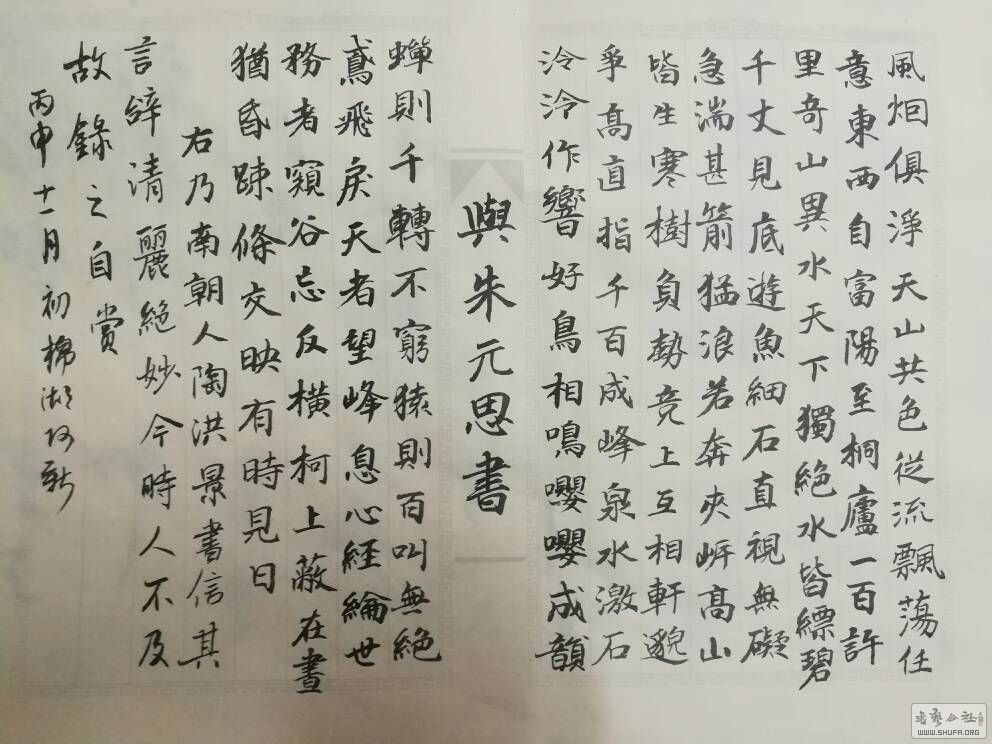 風烟俱淨天山共色從流飄蕩任
意東西自富陽至桐廬一百許
里奇山異水天下獨絕水皆縹碧
千丈見底遊魚細石直視無礙
急湍甚箭猛浪若奔夾岸高山
皆生寒樹負勢竞上互相軒邈
爭高直指千百成峰泉水激石
泠泠作響好鳥相鳴嚶嚶成韻
與朱元思書
蟬則千轉不窮猿則百叫無絕
鳶飛戾天者望峰息心經綸世
務者窺谷忘反橫柯上蔽在晝
猶昏踈條交映有時見日
右乃南朝人陶洪景書信其
言辭清麗絕妙今時人不及
故錄之自賞
丙申十一月初棉湖阿新
書藝公社
WWW.SHUFA.ORG